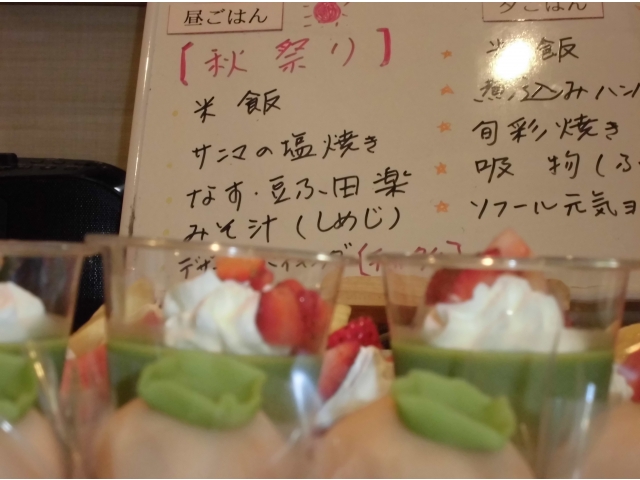 昼ごはん
[秋祭り]
米飯
サンマの塩焼き
なす・豆ふ田楽
みそ汁(しめじ)
夕ごはん
米飯
煮込みハン
旬彩焼き
吸物(ふ
ソフール元気ヨ